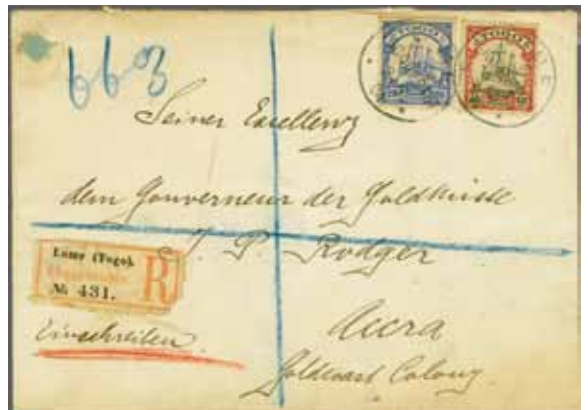 TOGO TOGO
663
Seiner Excellenz
dem Gouverneur der Goldküste
J. P. Rodger
Lome (Togo).
R
№ 431.
Einschreiben.
Accra
Goldcoast Colony